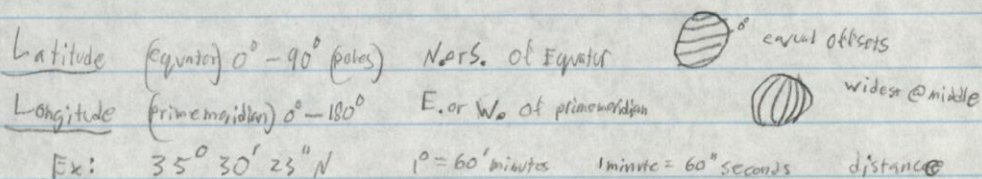 Latitude (equator) 0° - 90° (poles) N. or S. of Equator 0° equal offsets
Longitude (primemeridian) 0° - 180° E. or W. of primemeridian widest @ middle
Ex: 35° 30' 23" N 1° = 60' minutes 1 minute = 60" seconds distance